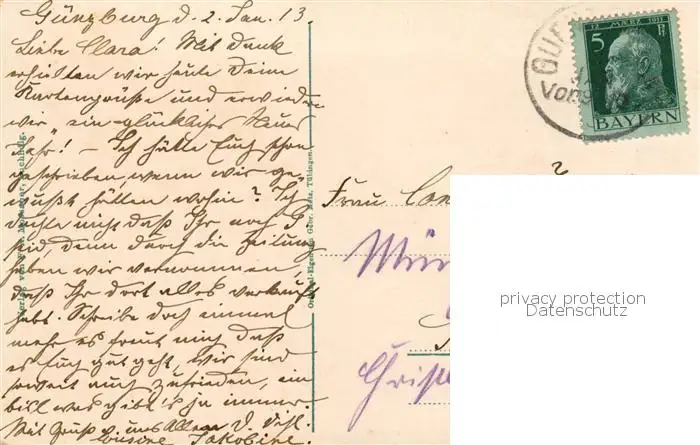 Günzburg d. 2. Jan. 13.
Liebe Clara! Mit Dank
erhielten wir heute Deine
Kartengrüße und erwiedern
wir ein "glückliches Neues
Jahr"! – Ich hätte Euch schon
geschrieben, wenn wir ge-
wußt hätten wohin? Ich
dachte nicht daß Ihr noch
seid, denn durch die Zeitung
haben wir vernommen,
daß Ihr dort alles verkauft
habt. Schreibe doch einmal
mehr es freut mich daß
es Euch gut geht, wir sind
soweit auch zufrieden, ein
bißl was gibt's ja immer.
Mit Gruß v. uns Allen D. dchl.
Cousine Jakobine.
12. MÄRZ 1911
5 Pf
BAYERN
GU
Vor
Frau
Mün
privacy protection
Datenschutz